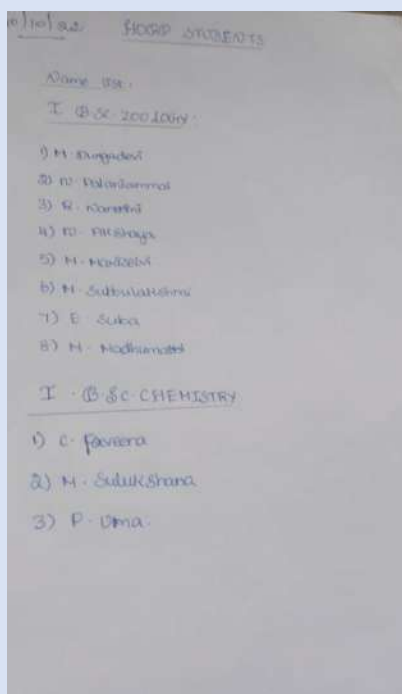 10/10/22 STUDENTS
Name list.
I B.Sc. ZOOLOGY.
1) M. Durgadevi
2) N. Palaniammal
3) R. Nandhini
4) N. Akshaya
5) M. Mariselvi
6) M. Subbulakshmi
7) E. Suba
8) N. Madhumathi
I. B.Sc. CHEMISTRY
1) C. Praveena
2) M. Sulukshana
3) P. Uma.